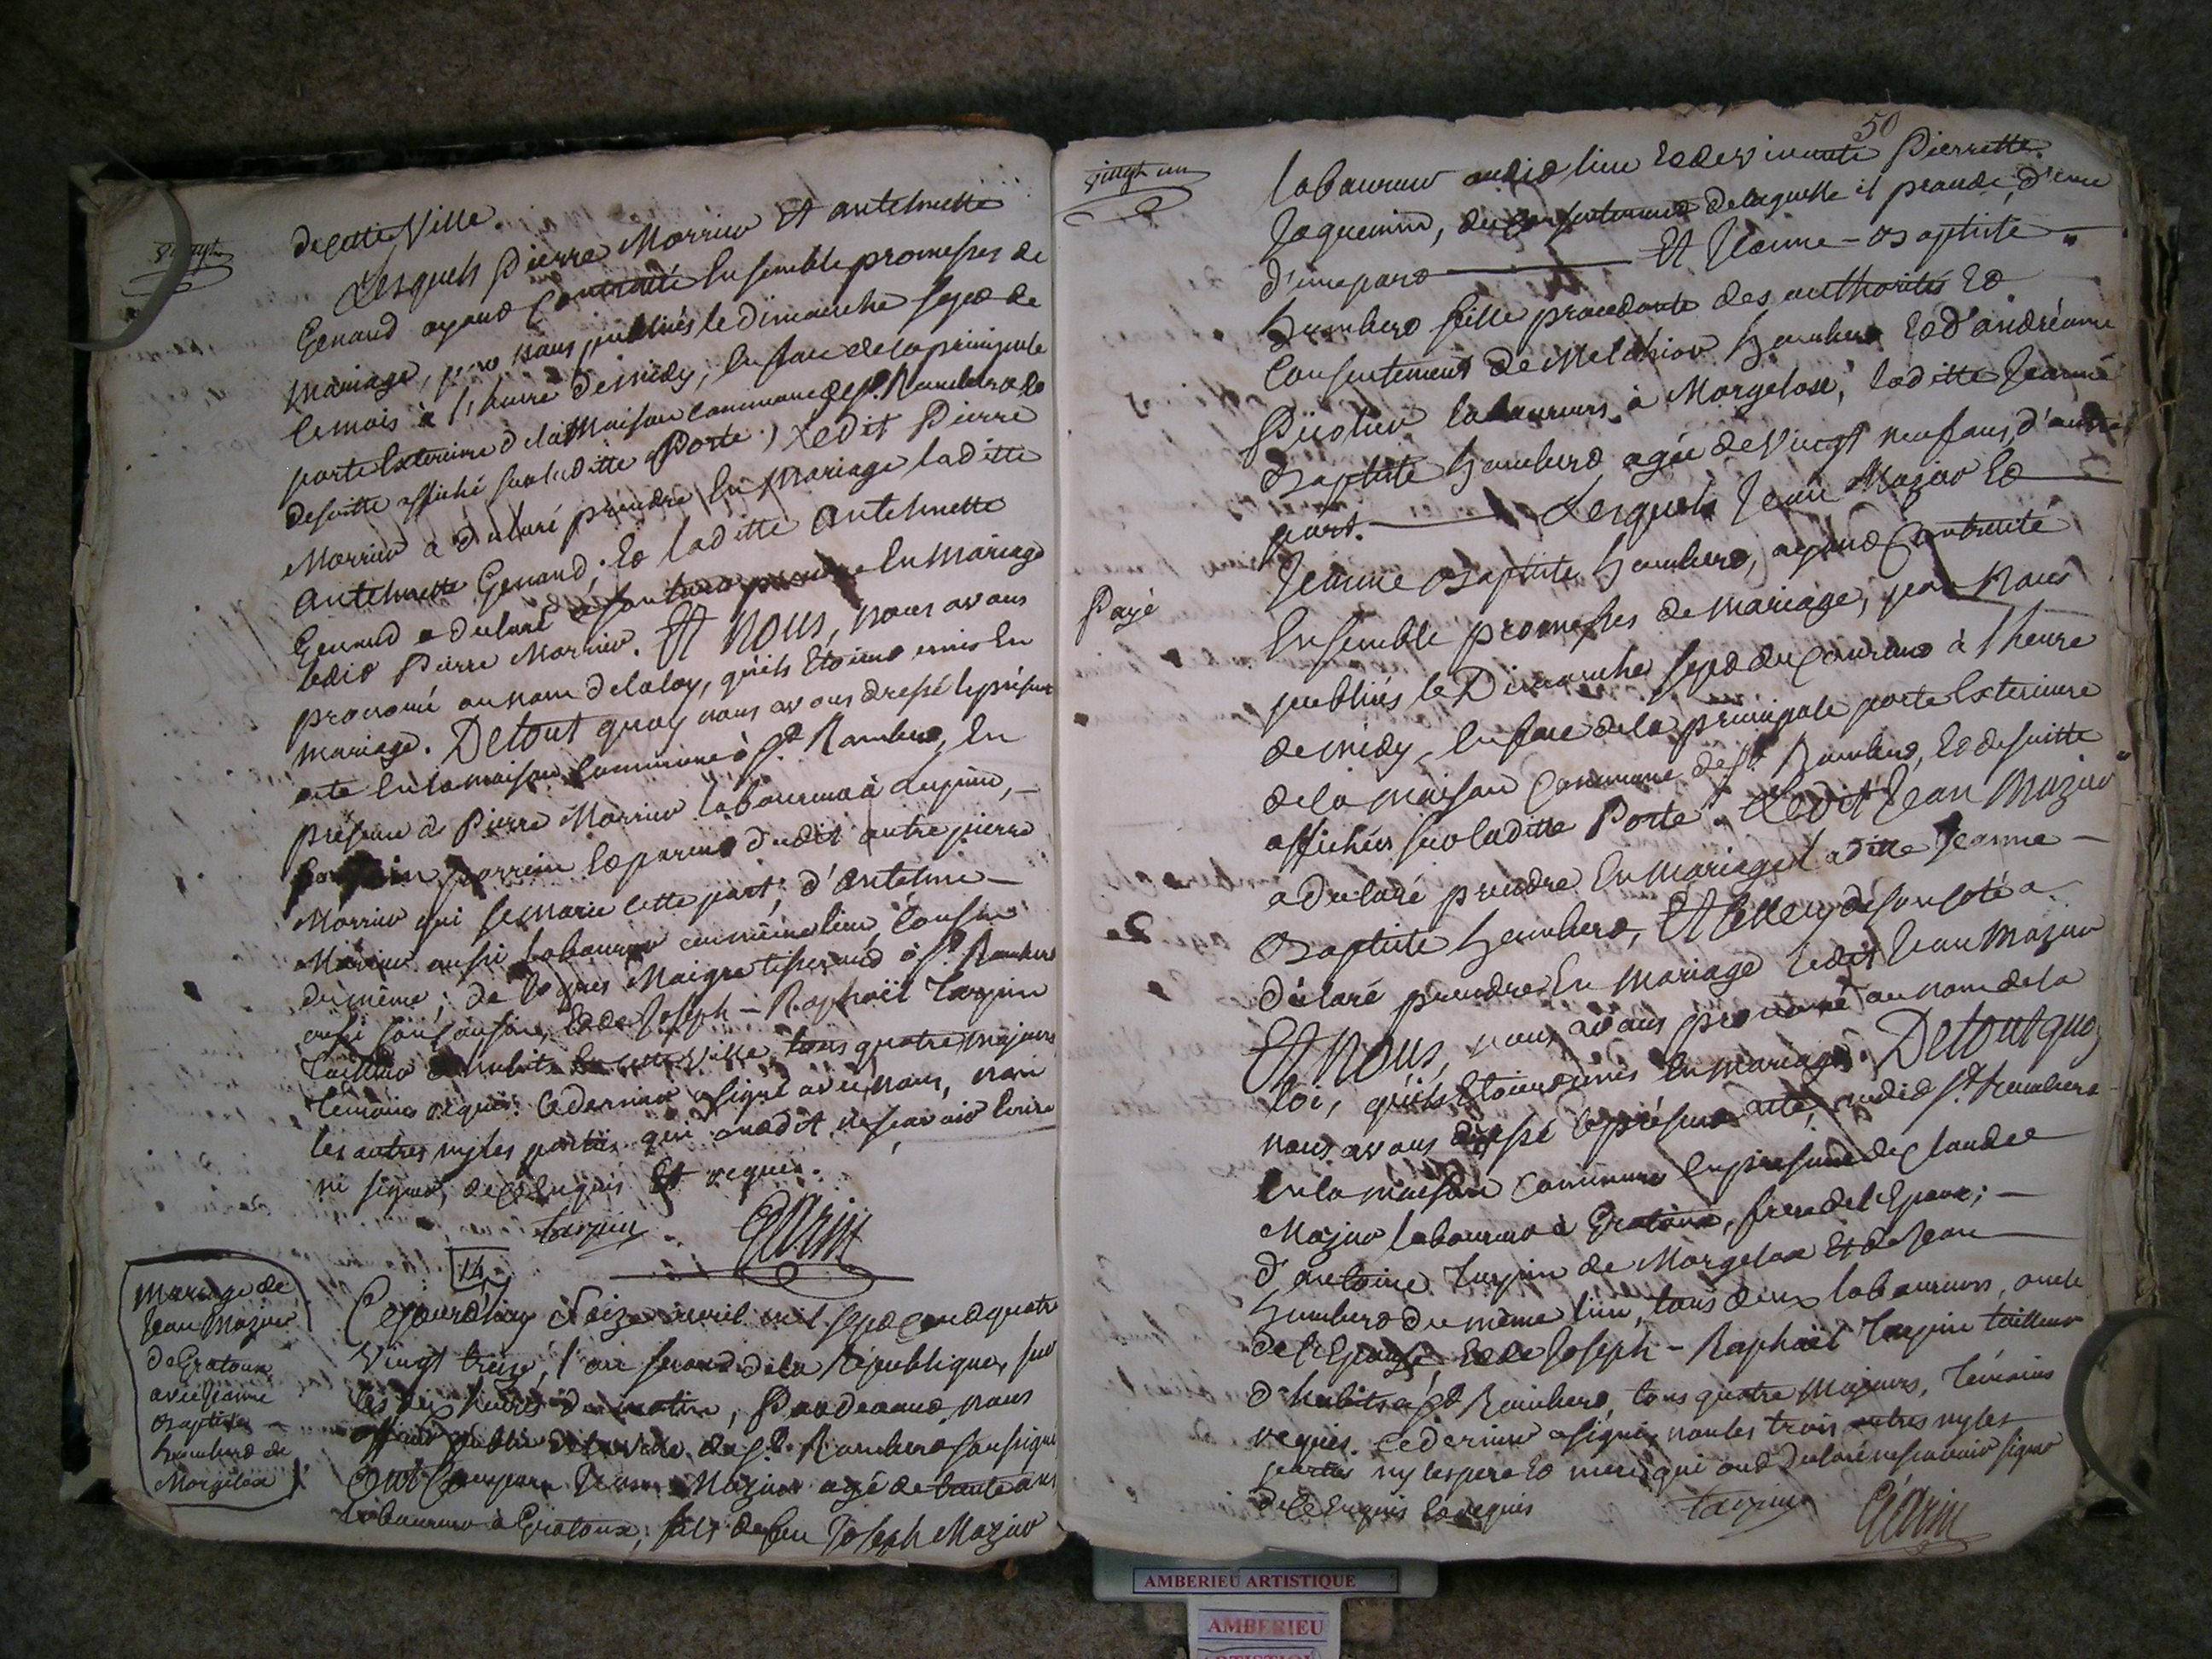 vingt
de cette Ville.
Lesquels Pierre Morrier Et antelmette
Genand ayand Contracté Ensemble promesses de
mariage, par nous publiés le dimanche sept de
ce mois à l'heure de midy, En face de la principale
porte Exterieure de la Maison commune de St. Rambert Et
de suitte affiché sur laditte Porte, Ledit Pierre
Morrier a déclaré prendre En Mariage laditte
Antelmette Genand; Et laditte Antelmette
Genand a déclaré a son tour prendre En Mariage
ledit Pierre Morrier. Et Nous, nous avons
prononcé au nom de la loy, qu'ils Etoient unis En
mariage. De tout quoy nous avons dressé le présent
acte En la maison Commune à St. Rambert, En
présence de Pierre Morrier laboureur à
parrein Et parent dudit autre pierre
Morrier qui se marie cette part; d'Antelme
Morrier aussi laboureur au même lieu, Cousin
du même; de Maigre tisserand à St. Rambert
aussi son Cousin, Et de Joseph-Raphaël Tarpin
Tailleur d'habits En cette Ville, tous quatre majeurs
Témoins requis. Ce dernier a signé avec nous, non
les autres ny les parties qui ont dit ne scavoir Ecrire
ni signer, de ce Enquis Et requis.
tarpin Garin
14
Mariage de
Jean Mazuir
de Gratoux
avec Jeanne
Baptiste
Humbert de
Morgelax
Cejourd'huy Seize avril mil sept cend quatre
vingt treize, l'an second de la République, sur
les dix heures du matin, Pardevand nous
officier public de la Ville de St. Rambert soussigné
Ont Comparu Jean Mazuir agé de trente ans
laboureur à Gratoux, fils de feu Joseph Mazuir
50
vingt un
laboureur audit lieu Et de vivante Pierrette
Jaquemin, du Consentement de laquelle il prande, d'une
d'une part Et Jeanne-Baptiste
Humbert fille procédante des authorités Et
Consentement de Melchior Humbert Et d'andréanne
laboureurs à Morgelax, laditte Jeanne
Baptiste Humbert agée de Vingt neuf ans, d'autre
part. Lesquels Jean Mazuir Et
Jeanne Baptiste Humbert, ayand Contracté
Payé
Ensemble promesses de mariage, par Nous
publiés le Dimanche sept du Courand à l'heure
de midy, En face de la principale porte Exterieure
de la maison Commune de St. Rambert, Et de suitte
affichés sur laditte Porte. Ledit Jean Mazuir
a déclaré prendre En mariage laditte Jeanne
Baptiste Humbert, Et Elle de son coté a
déclaré prendre En mariage ledit Jean Mazuir
Et Nous, nous avons prononcé au nom de la
loi, qu'ils Etoient unis En mariage. De tout quoy
nous avons dressé le présent acte, audit St. Rambert
En la maison Commune En présence de Claude
Mazuir laboureur à Gratoux, frere de l'Epoux;
d'antoine Tarpin de Morgelax Et de Jean
Humbert du même lieu, tous deux laboureurs, oncle
de l'Epouse, Et de Joseph-Raphaël Tarpin tailleur
d'habits à St. Rambert, tous quatre Majeurs, Témoins
requis. Ce dernier a signé, non les trois autres ny les
parties ny les pere Et mere, qui ont déclaré ne scavoir signer
de ce Enquis Et requis
tarpin Garin
AMBERIEU ARTISTIQUE
AMBERIEU